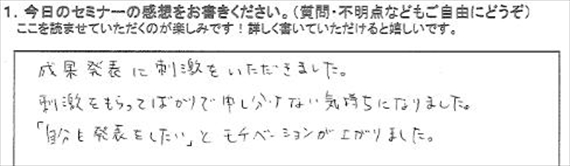 1. 今日のセミナーの感想をお書きください。(質問・不明点などもご自由にどうぞ)
ここを読ませていただくのが楽しみです！詳しく書いていただけると嬉しいです。
成果発表に刺激をいただきました。
刺激をもらってばかりで申し分けない気持ちになりました。
「自分も発表をしたい」とモチベーションが上がりました。